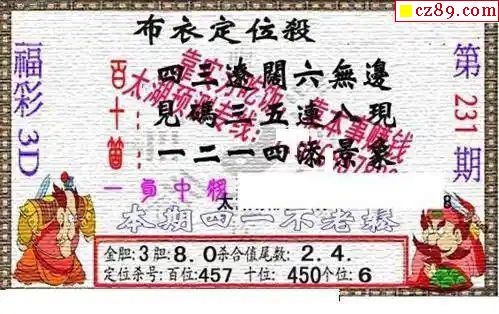 cz89.com
布衣定位殺
福彩3D
第231期
百十箇
四三遼闊六無邊
見碼三五連入現
一二一四添景象
太湖
8
本期四一不老
金胆:3胆:8.0杀合值尾数:2.4.
定位杀号:百位:457 十位:450个位:6